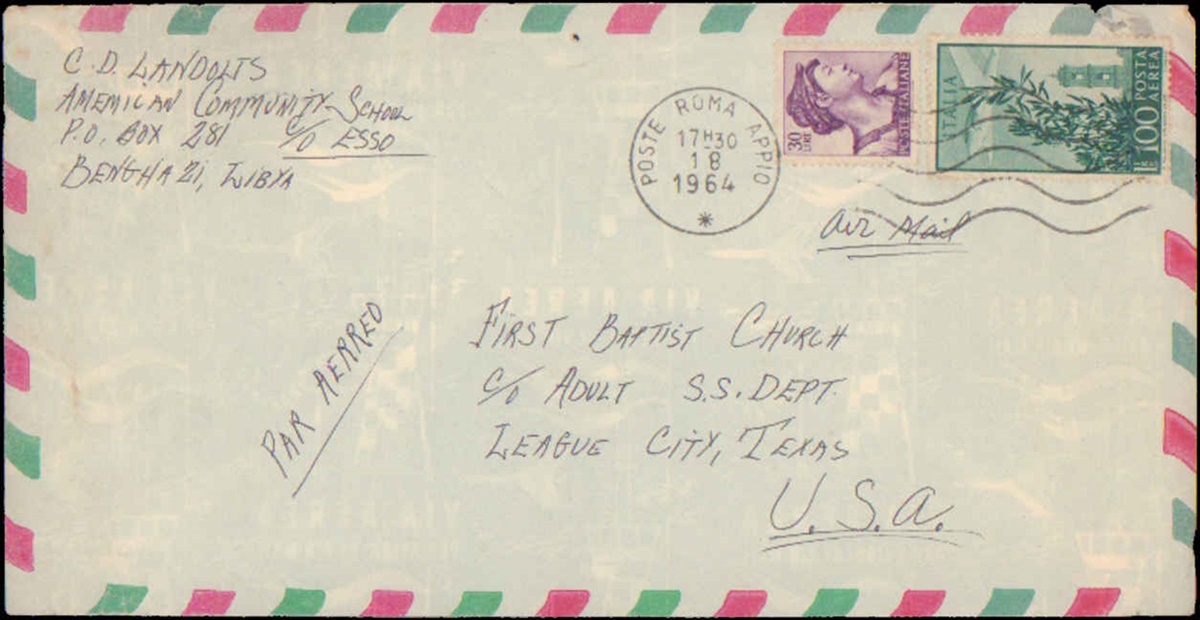 C. D. LANDOLTS
AMEMICAN COMMUNITY SCHOOL
P.O. BOX 281 C/O ESSO
BENGHAZI, LIBYA
POSTE ROMA APPIO
17H30
18
1964
*
30 LIRE
POSTE ITALIANE
ITALIA
L. 100 POSTA AEREA
Air Mail
PAR AERREO
FIRST BAPTIST CHURCH
C/O ADULT S.S. DEPT.
LEAGUE CITY, TEXAS
U.S.A.
VIA AEREA